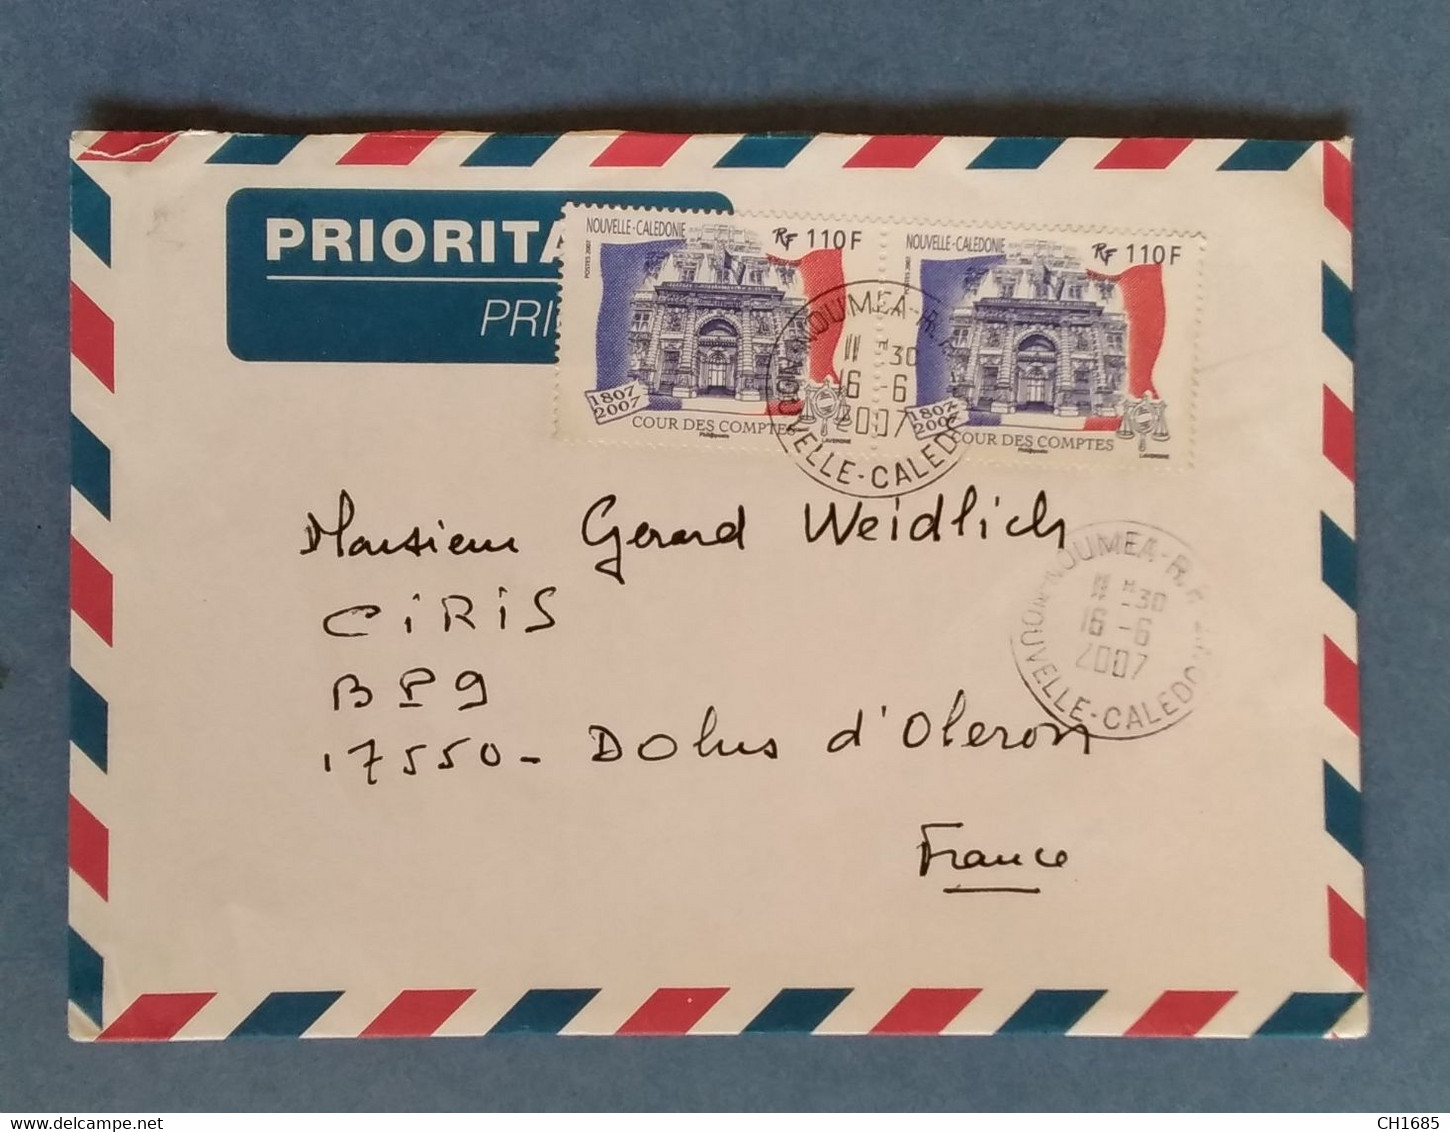 PRIORITA
PRI
NOUVELLE-CALEDONIE RF 110F
POSTES 2007
1807
2007
COUR DES COMPTES
LAVERGNE
NOUVELLE-CALEDONIE RF 110F
POSTES 2007
1807
2007
COUR DES COMPTES
LAVERGNE
NOUMEA-R.P.
11 H30
16-6
2007
NOUVELLE-CALEDONIE
Monsieur Gerard Weidlich
CIRIS
BP9
17550 - Dolus d'Oleron
France
NOUMEA-R.P.
11 H30
16-6
2007
NOUVELLE-CALEDO
delcampe.net
CH1685